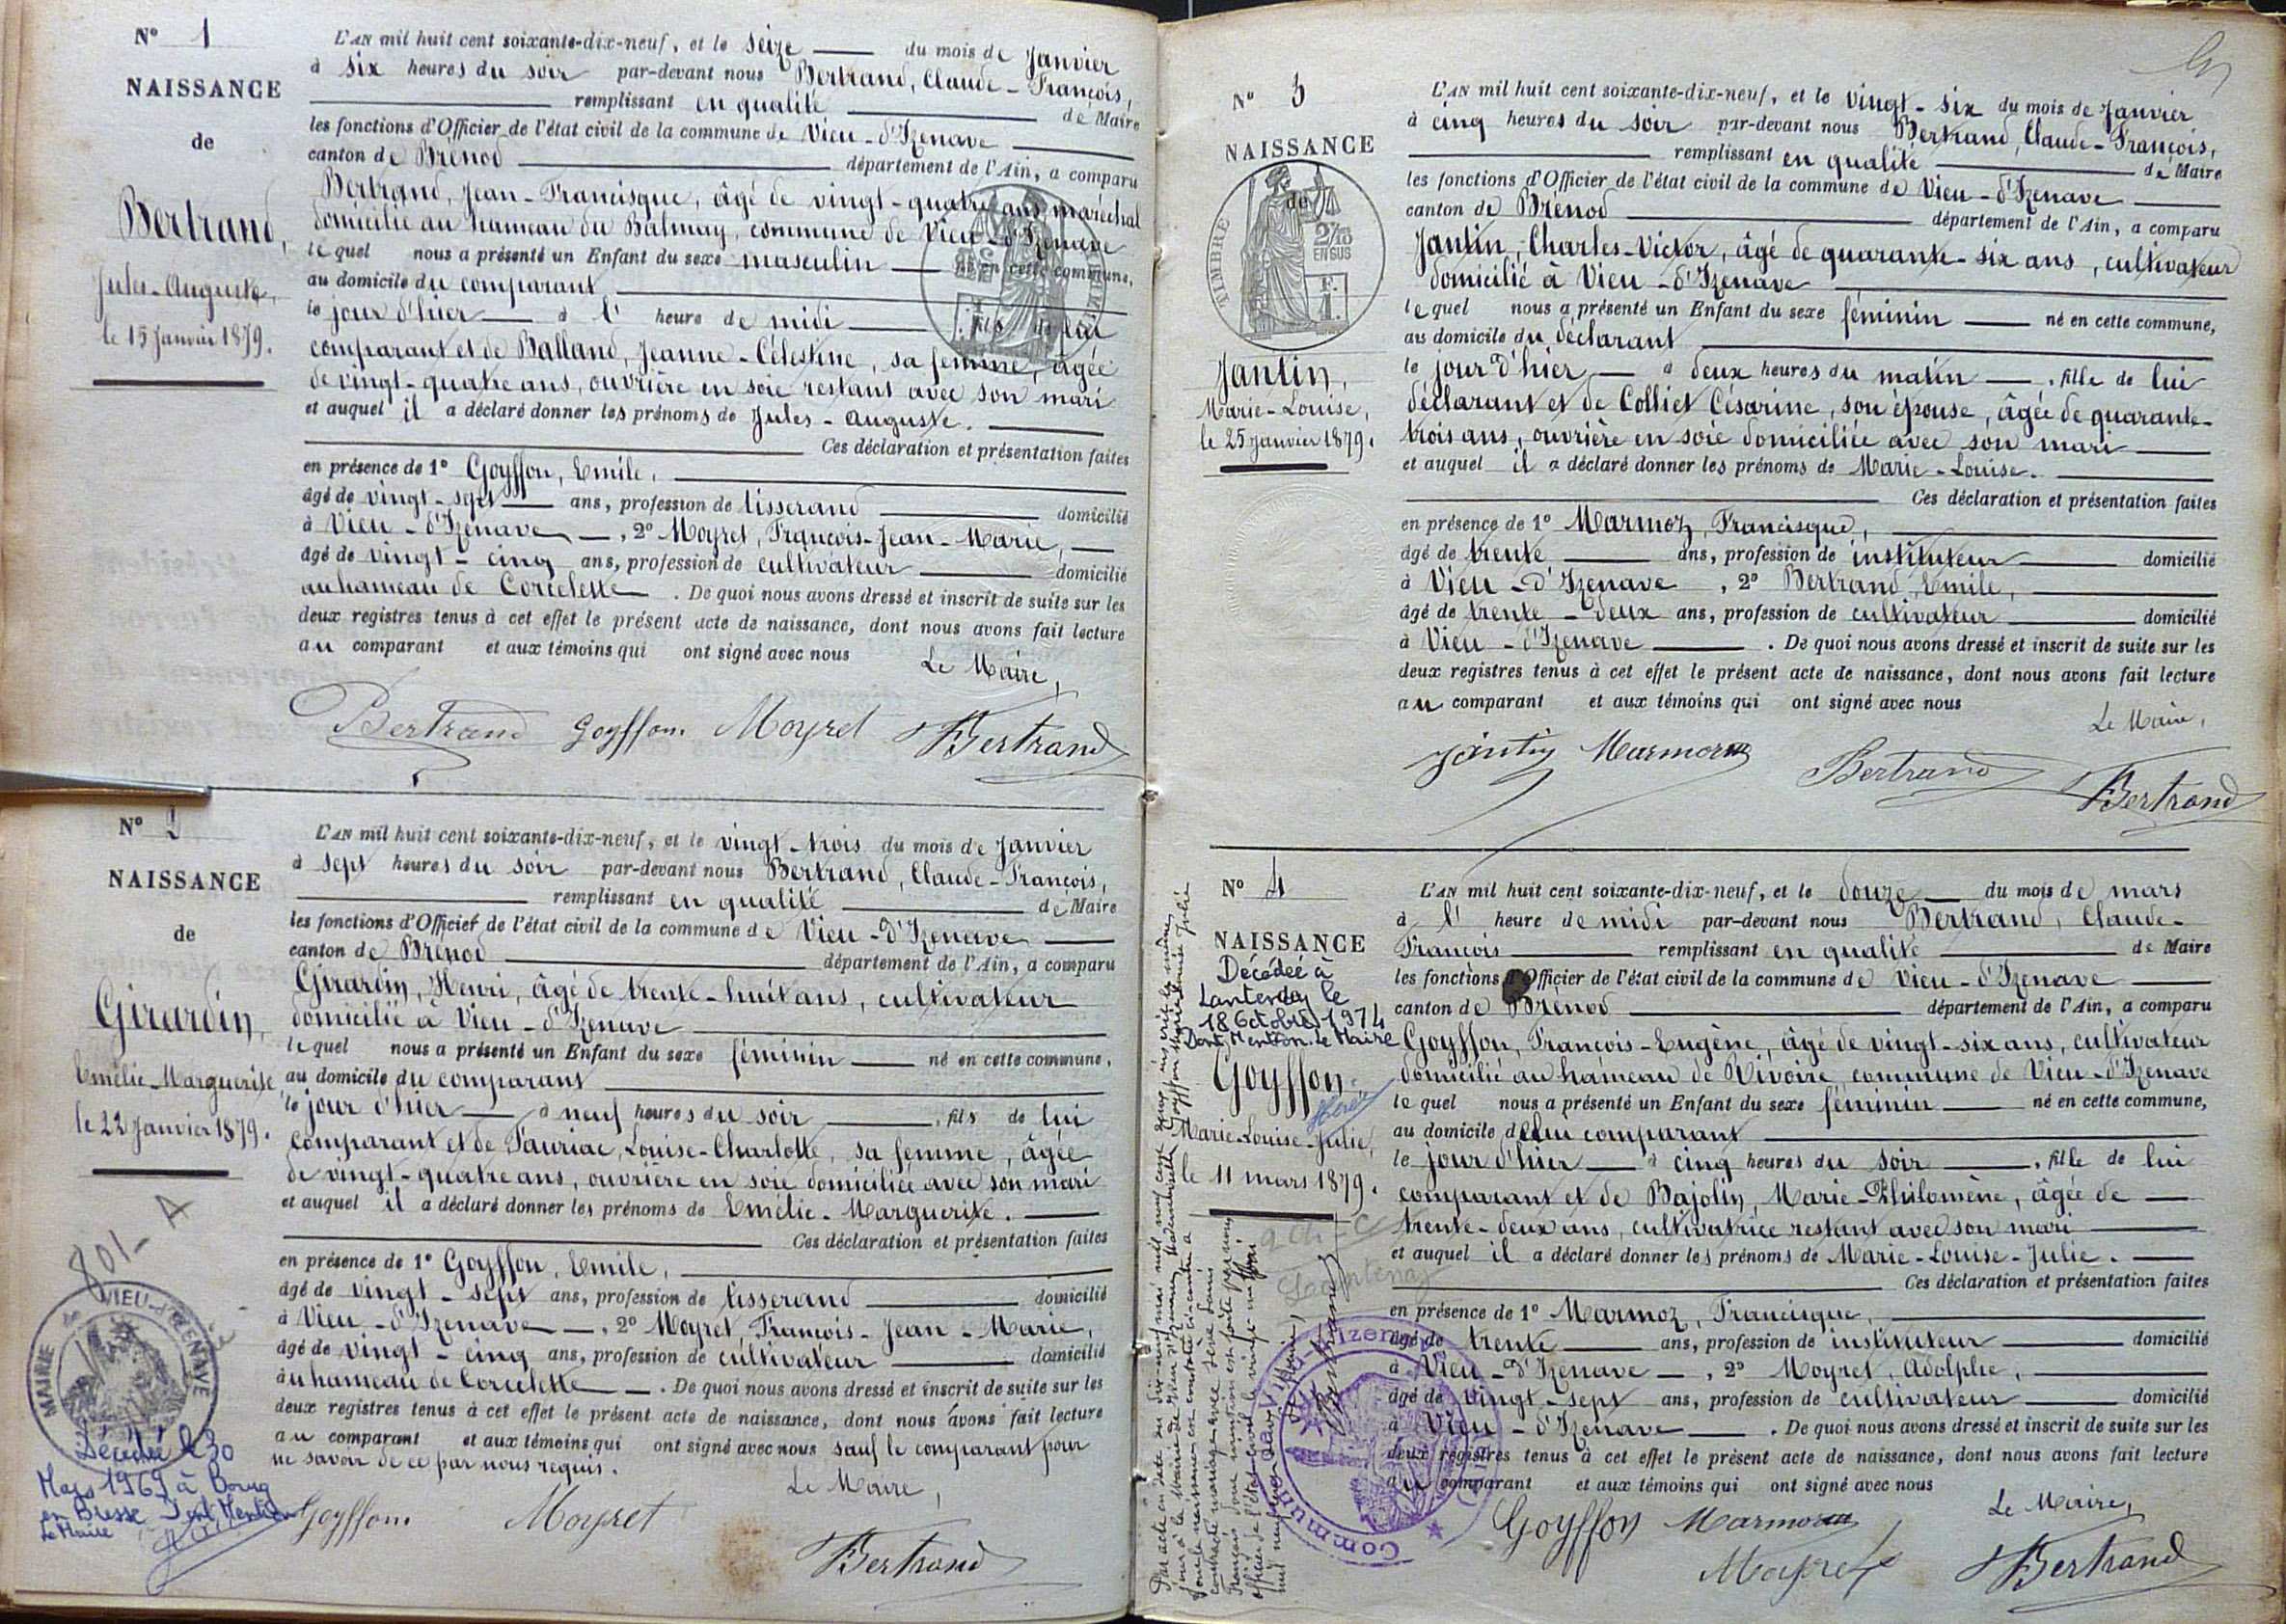 N° 1
NAISSANCE
de
Bertrand,
Jules-Auguste,
le 15 Janvier 1879.
L'AN mil huit cent soixante-dix-neuf, et le seize du mois de Janvier
à six heures du soir par-devant nous Bertrand, Claude-François,
remplissant en qualité de Maire
les fonctions d'Officier de l'état civil de la commune de Vieu-d'Izenave
canton de Brénod département de l'Ain, a comparu
Bertrand, Jean-Francisque, âgé de vingt-quatre ans maréchal
domicilié au hameau du Balmay, commune de Vieu-d'Izenave
lequel nous a présenté un Enfant du sexe masculin né en cette commune,
au domicile du comparant
le jour d'hier à l' heure de midi, fils de lui
comparant et de Balland, Jeanne-Célestine, sa femme, âgée
de vingt-quatre ans, ouvrière en soie restant avec son mari
et auquel il a déclaré donner les prénoms de Jules-Auguste.
Ces déclaration et présentation faites
en présence de 1° Goyffon, Emile,
âgé de vingt-sept ans, profession de tisserand domicilié
à Vieu-d'Izenave, 2° Moyret, François-Jean-Marie,
âgé de vingt-cinq ans, profession de cultivateur domicilié
au hameau de Corcelette. De quoi nous avons dressé et inscrit de suite sur les
deux registres tenus à cet effet le présent acte de naissance, dont nous avons fait lecture
au comparant et aux témoins qui ont signé avec nous
Le Maire,
Bertrand Goyffon Moyret Bertrand
N° 2
NAISSANCE
de
Girardin,
Emélie-Marguerite
le 22 Janvier 1879.
801-A
MAIRIE de VIEU-d'IZENAVE
Décédée le 30
Mars 1969 à Bourg
en Bresse Dont Mention
Le Maire
L'AN mil huit cent soixante-dix-neuf, et le vingt-trois du mois de Janvier
à sept heures du soir par-devant nous Bertrand, Claude-François,
remplissant en qualité de Maire
les fonctions d'Officier de l'état civil de la commune de Vieu-d'Izenave
canton de Brénod département de l'Ain, a comparu
Girardin, Henri, âgé de trente-huit ans, cultivateur
domicilié à Vieu-d'Izenave
lequel nous a présenté un Enfant du sexe féminin né en cette commune,
au domicile du comparant
le jour d'hier à neuf heures du soir, fils de lui
comparant et de Tauriac, Louise-Charlotte, sa femme, âgée
de vingt-quatre ans, ouvrière en soie domiciliée avec son mari
et auquel il a déclaré donner les prénoms de Emélie-Marguerite.
Ces déclaration et présentation faites
en présence de 1° Goyffon, Emile,
âgé de vingt-sept ans, profession de tisserand domicilié
à Vieu-d'Izenave, 2° Moyret, François-Jean-Marie,
âgé de vingt-cinq ans, profession de cultivateur domicilié
au hameau de Corcelette. De quoi nous avons dressé et inscrit de suite sur les
deux registres tenus à cet effet le présent acte de naissance, dont nous avons fait lecture
au comparant et aux témoins qui ont signé avec nous sauf le comparant pour
ne savoir de ce par nous requis.
Le Maire,
Goyffon Moyret
Bertrand
N° 3
NAISSANCE
de
TIMBRE
2/10
EN SUS
F.
1.
Jantin,
Marie-Louise,
le 25 Janvier 1879.
L'AN mil huit cent soixante-dix-neuf, et le vingt-six du mois de Janvier
à cinq heures du soir par-devant nous Bertrand, Claude-François,
remplissant en qualité de Maire
les fonctions d'Officier de l'état civil de la commune de Vieu-d'Izenave
canton de Brénod département de l'Ain, a comparu
Jantin, Charles-Victor, âgé de quarante-six ans, cultivateur
domicilié à Vieu-d'Izenave
lequel nous a présenté un Enfant du sexe féminin né en cette commune,
au domicile du déclarant
le jour d'hier à deux heures du matin, fille de lui
déclarant et de Colliet Césarine, son épouse, âgée de quarante-
trois ans, ouvrière en soie domiciliée avec son mari
et auquel il a déclaré donner les prénoms de Marie-Louise.
Ces déclaration et présentation faites
en présence de 1° Marmoz, Francisque,
âgé de trente ans, profession de instituteur domicilié
à Vieu-d'Izenave, 2° Bertrand, Emile,
âgé de trente-deux ans, profession de cultivateur domicilié
à Vieu-d'Izenave. De quoi nous avons dressé et inscrit de suite sur les
deux registres tenus à cet effet le présent acte de naissance, dont nous avons fait lecture
au comparant et aux témoins qui ont signé avec nous
Le Maire,
Jantin Marmoz Bertrand Bertrand
N° 4
NAISSANCE
Décédée à
Lantenay le
18 Octobre 1974
Dont Mention. Le Maire
Goyffon,
Marie-Louise-Julie,
le 11 mars 1879.
Lantenay
L'AN mil huit cent soixante-dix-neuf, et le douze du mois de mars
à l' heure de midi par-devant nous Bertrand, Claude-
François remplissant en qualité de Maire
les fonctions d'Officier de l'état civil de la commune de Vieu-d'Izenave
canton de Brénod département de l'Ain, a comparu
Goyffon, François-Eugène, âgé de vingt-six ans, cultivateur
domicilié au hameau de Vivoire, commune de Vieu-d'Izenave
lequel nous a présenté un Enfant du sexe féminin né en cette commune,
au domicile de lui comparant
le jour d'hier à cinq heures du soir, fille de lui
comparant et de Bajolin, Marie-Philomène, âgée de
trente-deux ans, cultivatrice restant avec son mari
et auquel il a déclaré donner les prénoms de Marie-Louise-Julie.
Ces déclaration et présentation faites
en présence de 1° Marmoz, Francisque,
âgé de trente ans, profession de instituteur domicilié
à Vieu-d'Izenave, 2° Moyret, Adolphe,
âgé de vingt-sept ans, profession de cultivateur domicilié
à Vieu-d'Izenave. De quoi nous avons dressé et inscrit de suite sur les
deux registres tenus à cet effet le présent acte de naissance, dont nous avons fait lecture
au comparant et aux témoins qui ont signé avec nous
Le Maire,
Goyffon Marmoz
Moyret Bertrand